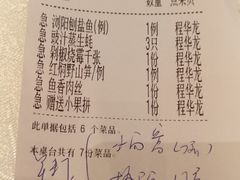 数量 点菜员
急 浏阳刨盐鱼(例) 1例 程华龙
急 豉汁蒸生蚝 3只 程华龙
急 剁椒烧霉千张 1份 程华龙
急 红焖野山笋/例 1例 程华龙
急 鱼香肉丝 1份 程华龙
急 赠送小果拼 1份 程华龙
此单据包括 6 个菜品,
本桌台共有 7份菜品。